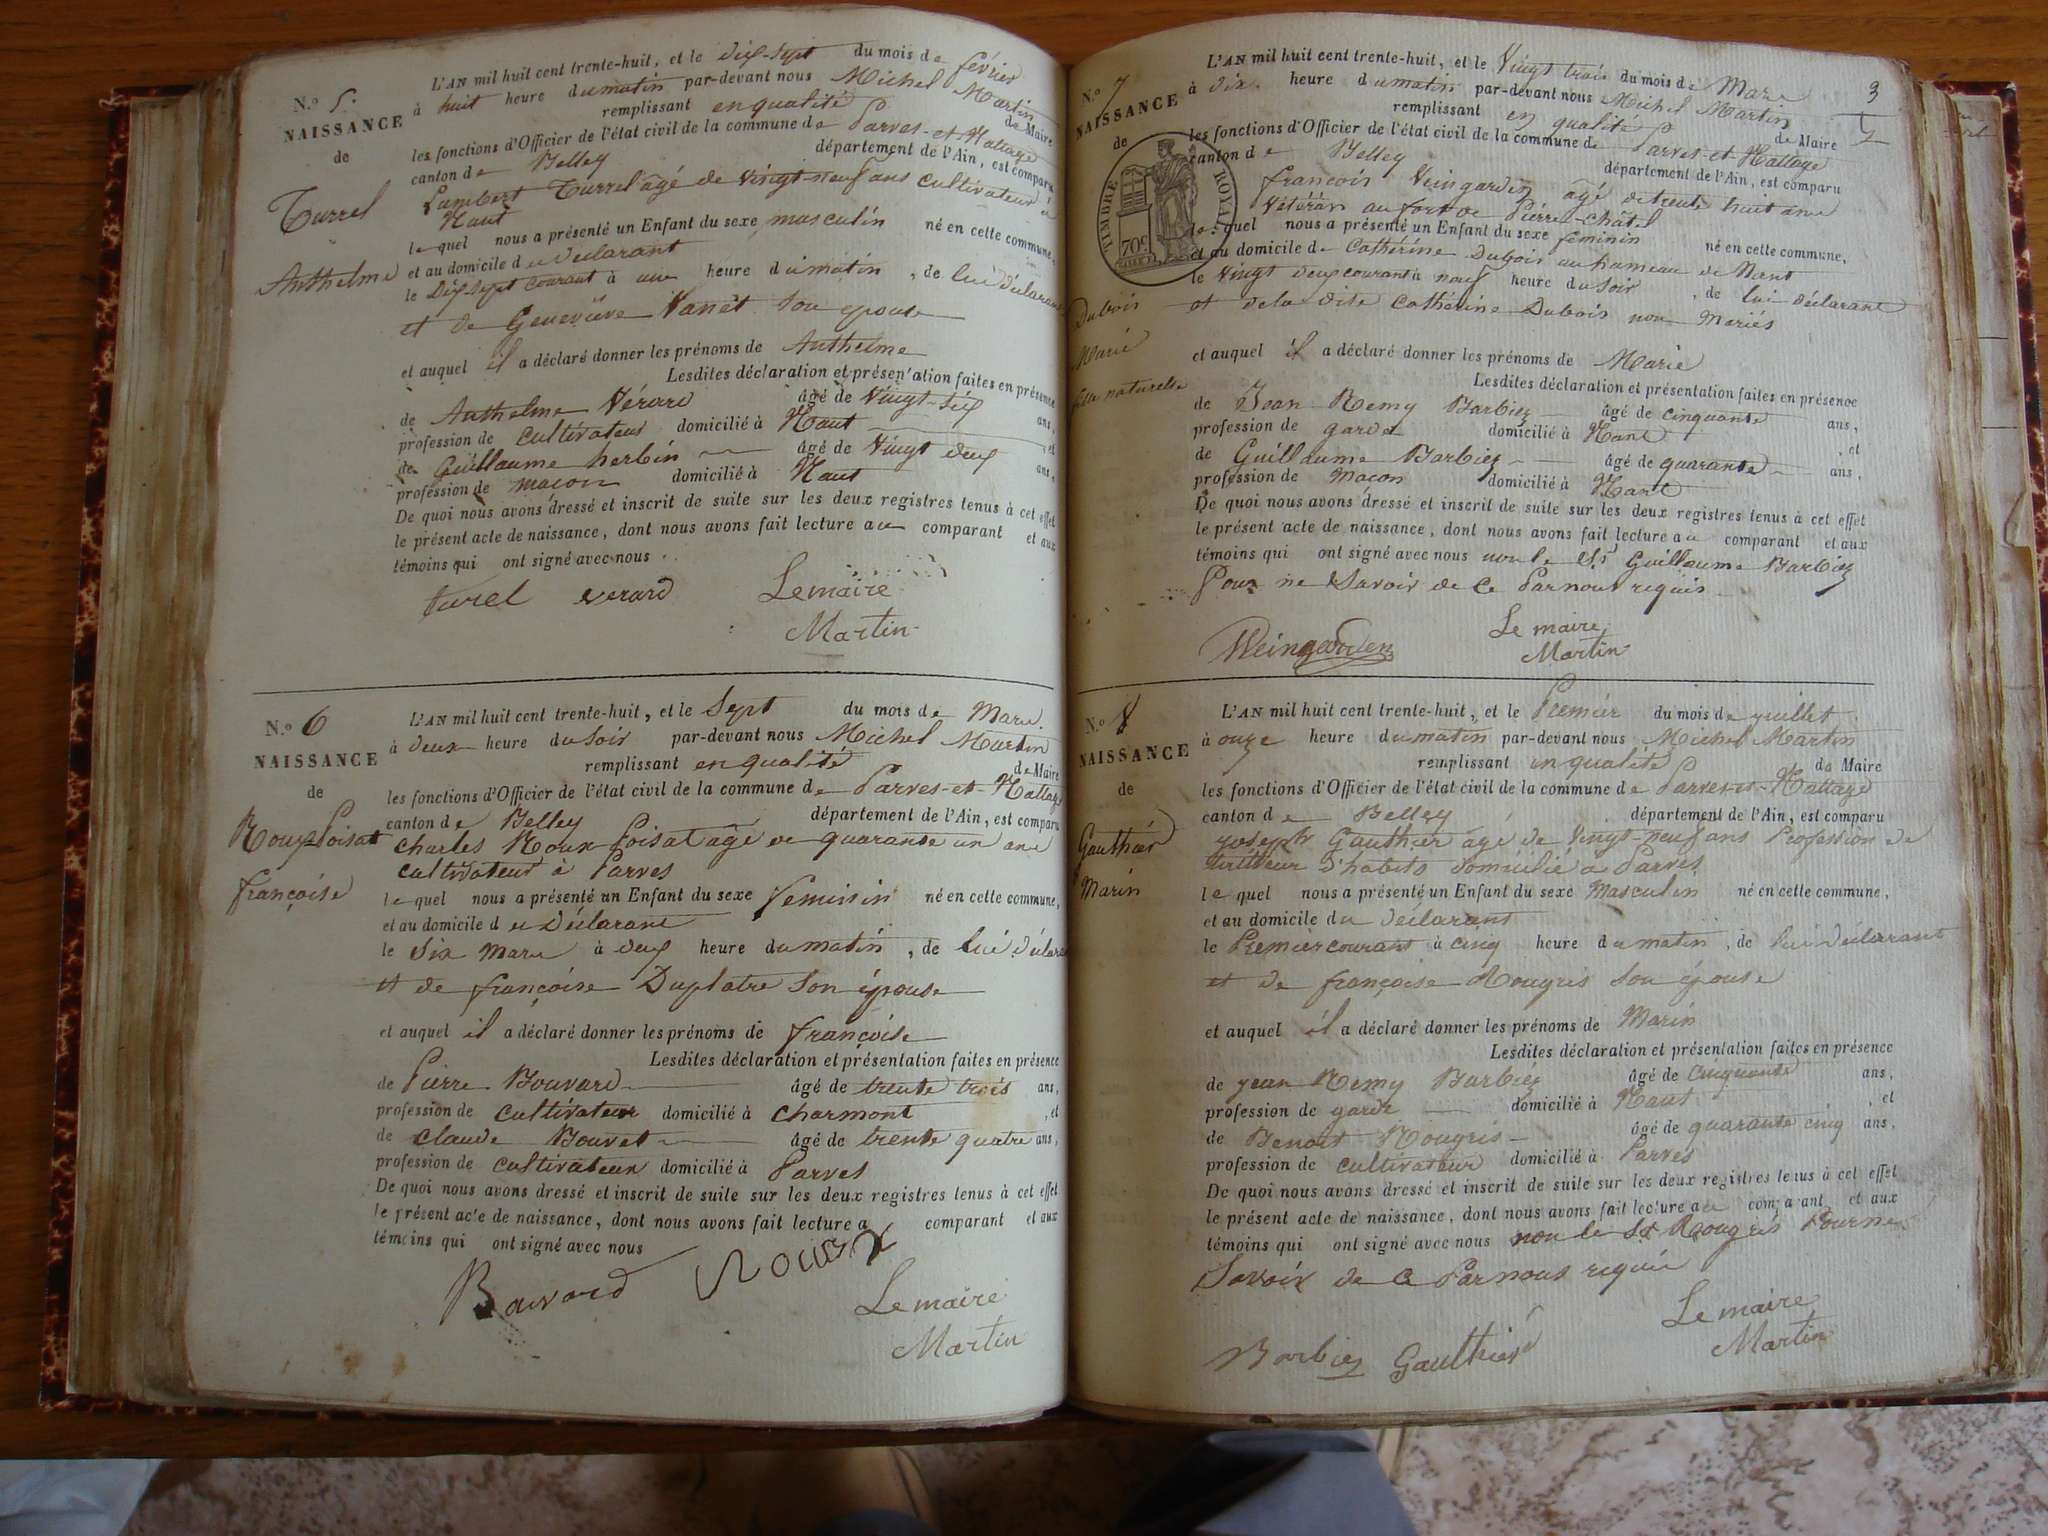 N.o 5.
NAISSANCE
de
Turrel
Anthelme
L'AN mil huit cent trente-huit, et le dix-sept du mois de février
à huit heure du matin par-devant nous Michel Martin
remplissant en qualité de Maire
les fonctions d'Officier de l'état civil de la commune de Parves-et-Nattage
canton de Belley département de l'Ain, est comparu
Lambert Turrel âgé de vingt-neuf ans cultivateur à
Nant
lequel nous a présenté un Enfant du sexe masculin né en cette commune,
et au domicile du déclarant
le dix-sept courant à une heure du matin, de lui déclarant
et de Geneviève Vanet son épouse
et auquel il a déclaré donner les prénoms de Anthelme
Lesdites déclaration et présentation faites en présence
de Anthelme Vérard âgé de vingt-six ans,
profession de cultivateur domicilié à Nant et
de Guillaume herbin âgé de vingt deux ans,
profession de maçon domicilié à Nant
De quoi nous avons dressé et inscrit de suite sur les deux registres tenus à cet effet
le présent acte de naissance, dont nous avons fait lecture au comparant et aux
témoins qui ont signé avec nous.
turel verard Le maire
Martin
N.o 6
NAISSANCE
de
Roux Poisat
françoise
L'AN mil huit cent trente-huit, et le Sept du mois de Mars
à deux heure du soir par-devant nous Michel Martin
remplissant en qualité de Maire
les fonctions d'Officier de l'état civil de la commune de Parves-et-Nattage
canton de Belley département de l'Ain, est comparu
charles Roux Poisat âgé de quarante un ans
cultivateur à Parves
lequel nous a présenté un Enfant du sexe feminin né en cette commune,
et au domicile du déclarant
le Six mars à deux heure du matin, de lui déclarant
et de françoise Duplatre son épouse
et auquel il a déclaré donner les prénoms de françoise
Lesdites déclaration et présentation faites en présence
de Pierre Bouvard âgé de trente trois ans,
profession de cultivateur domicilié à charmont, et
de claude Bouvet âgé de trente quatre ans,
profession de cultivateur domicilié à Parves
De quoi nous avons dressé et inscrit de suite sur les deux registres tenus à cet effet
le présent acte de naissance, dont nous avons fait lecture a comparant et aux
témoins qui ont signé avec nous
Bouvard Roux
Le maire
Martin
3
N.o 7
NAISSANCE
de
TIMBRE ROYAL
70c
Dubois
Marie
fille naturelle
L'AN mil huit cent trente-huit, et le Vingt trois du mois de Mars
à dix heure du matin par-devant nous Michel Martin
remplissant en qualité de Maire
les fonctions d'Officier de l'état civil de la commune de Parves-et-Nattage
canton de Belley département de l'Ain, est comparu
françois Veingarden âgé de trente huit ans
Vétéran au fort de Pierre-châtel
lequel nous a présenté un Enfant du sexe feminin né en cette commune,
et au domicile de Cathérine Dubois au hameau de Nant
le Vingt deux courant à neuf heure du soir, de lui déclarant
et de la dite Cathérine Dubois non Mariés
et auquel il a déclaré donner les prénoms de Marie
Lesdites déclaration et présentation faites en présence
de Jean Remy Barbiez âgé de cinquante ans,
profession de garde domicilié à Nant, et
de Guillaume Barbiez âgé de quarante ans,
profession de Maçon domicilié à Nant
De quoi nous avons dressé et inscrit de suite sur les deux registres tenus à cet effet
le présent acte de naissance, dont nous avons fait lecture au comparant et aux
témoins qui ont signé avec nous non le Sr Guillaume Barbiez
Pour ne Savoir de ce Par nous requis
Weingarden Le maire
Martin
N.o 8
NAISSANCE
de
Gauthier
Marin
L'AN mil huit cent trente-huit, et le Premier du mois de juillet
à onze heure du matin par-devant nous Michel Martin
remplissant en qualité de Maire
les fonctions d'Officier de l'état civil de la commune de Parves-et-Nattage
canton de Belley département de l'Ain, est comparu
joseph Gauthier âgé de Vingt-neuf ans Profession de
d'habits domicilié à Parves
lequel nous a présenté un Enfant du sexe Masculin né en cette commune,
et au domicile du déclarant
le Premier courant à cinq heure du matin, de lui déclarant
et de françoise Rougris son épouse
et auquel il a déclaré donner les prénoms de Marin
Lesdites déclaration et présentation faites en présence
de jean Remy Barbiez âgé de cinquante ans,
profession de garde domicilié à Nant, et
de Benoit Rougris âgé de quarante cinq ans,
profession de cultivateur domicilié à Parves
De quoi nous avons dressé et inscrit de suite sur les deux registres tenus à cet effet
le présent acte de naissance, dont nous avons fait lecture au comparant et aux
témoins qui ont signé avec nous non le Sr Rougris Pour ne
Savoir de ce Par nous requis
Le maire
Barbiez Gauthier Martin